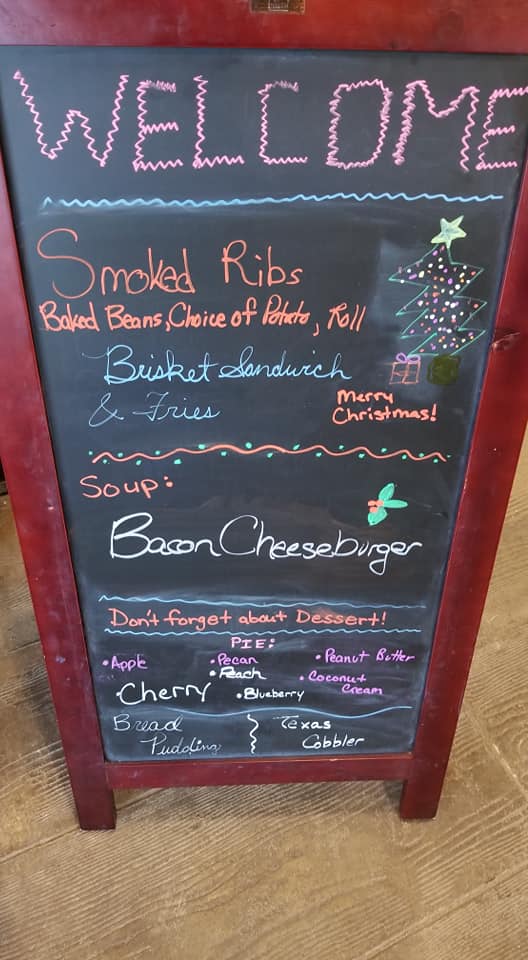 WELCOME
Smoked Ribs
Baked Beans, Choice of Potato, Roll
Brisket Sandwich
& Fries
Merry
Christmas!
Soup:
Bacon Cheeseburger
Don't forget about Dessert!
PIE:
•Apple
•Pecan
•Peanut Butter
•Peach
•Coconut
Cream
•Cherry
•Blueberry
Bread
Pudding
Texas
Cobbler